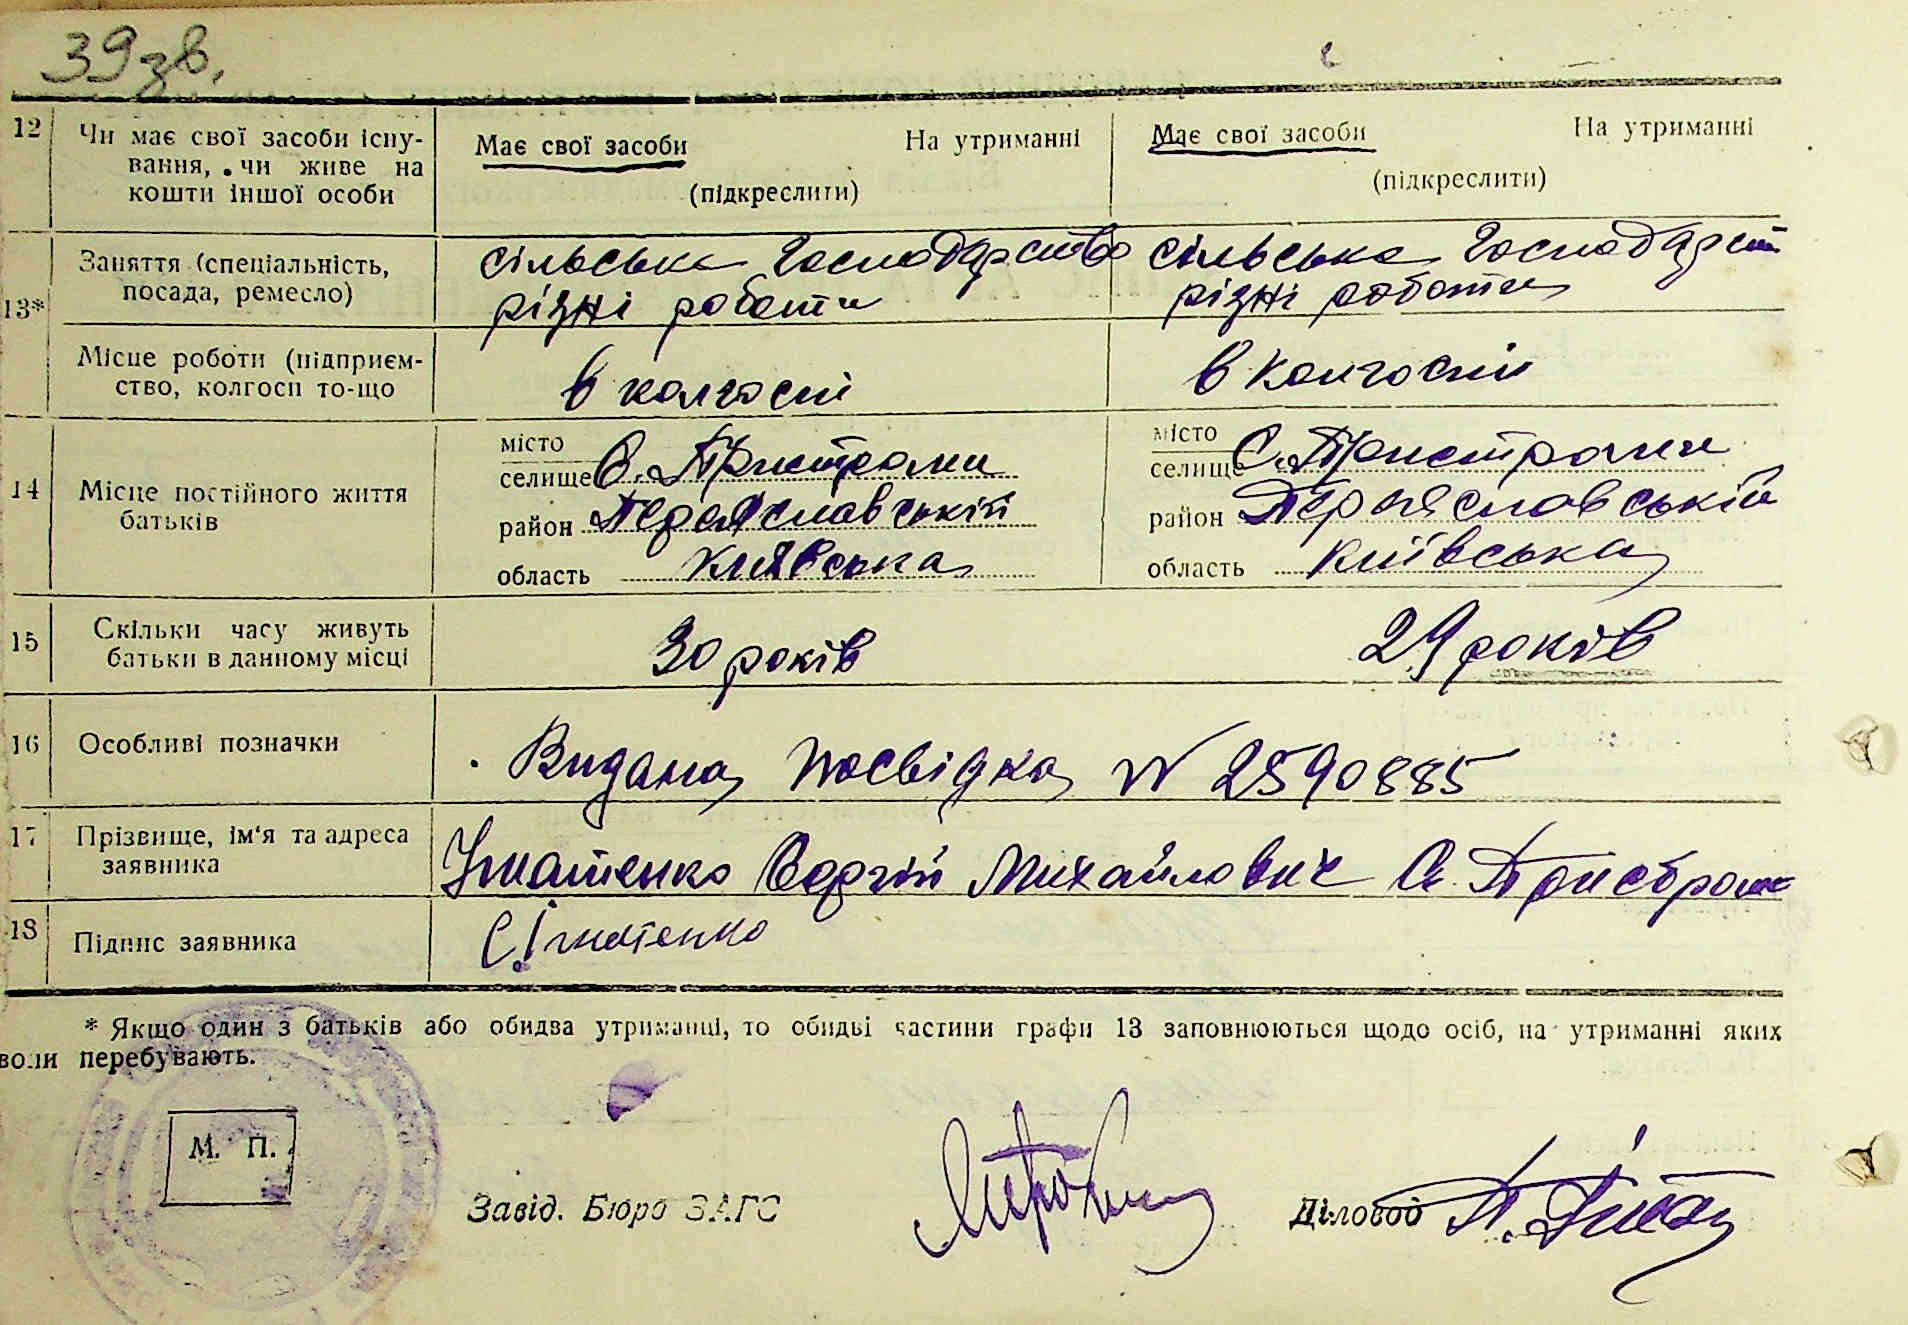 39 зв.
12 Чи має свої засоби існу- Має свої засоби На утриманні Має свої засоби На утриманні
вання, чи живе на
кошти іншої особи (підкреслити) (підкреслити)
13* Заняття (спеціальність, сільське господарство сільське господарст
посада, ремесло) різні роботи різні роботи
Місце роботи (підприєм- в колгоспі в колгоспі
ство, колгосп то-що
14 Місце постійного життя
батьків
місто
селище С. Пристроми
район Переяславській
область Київська
місто
селище С. Пристроми
район Переяславській
область Київська
15 Скільки часу живуть 30 років 29 років
батьки в данному місці
16 Особливі позначки Видана посвідка N 2590885
17 Прізвище, ім'я та адреса Ігнатенко Михайлович С.
заявника
18 Підпис заявника С. Ігнатенко
* Якщо один з батьків або обидва утриманці, то обидві частини графи 13 заповнюються щодо осіб, на утриманні яких
вони перебувають.
М. П.
Завід. Бюро ЗАГС Діловод